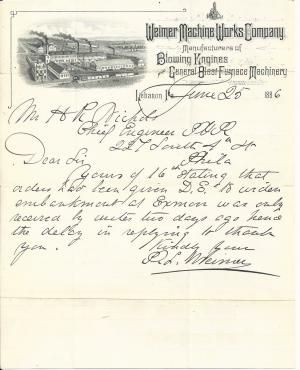 Weimer Machine Works Company,
Manufacturers of
Blowing Engines
and General Blast Furnace Machinery
Lebanon Pa. June 25 1886
Mr H K Nichols
Chief Engineer P&R
227 South 4th St
Phila
Dear Sir
Yours of 16th stating that
orders had been given D.E. to widen
embankment at was only
received by writer two days ago hence
the delay in replying to thank
you.
Kindly Yours
P. L. Weimer